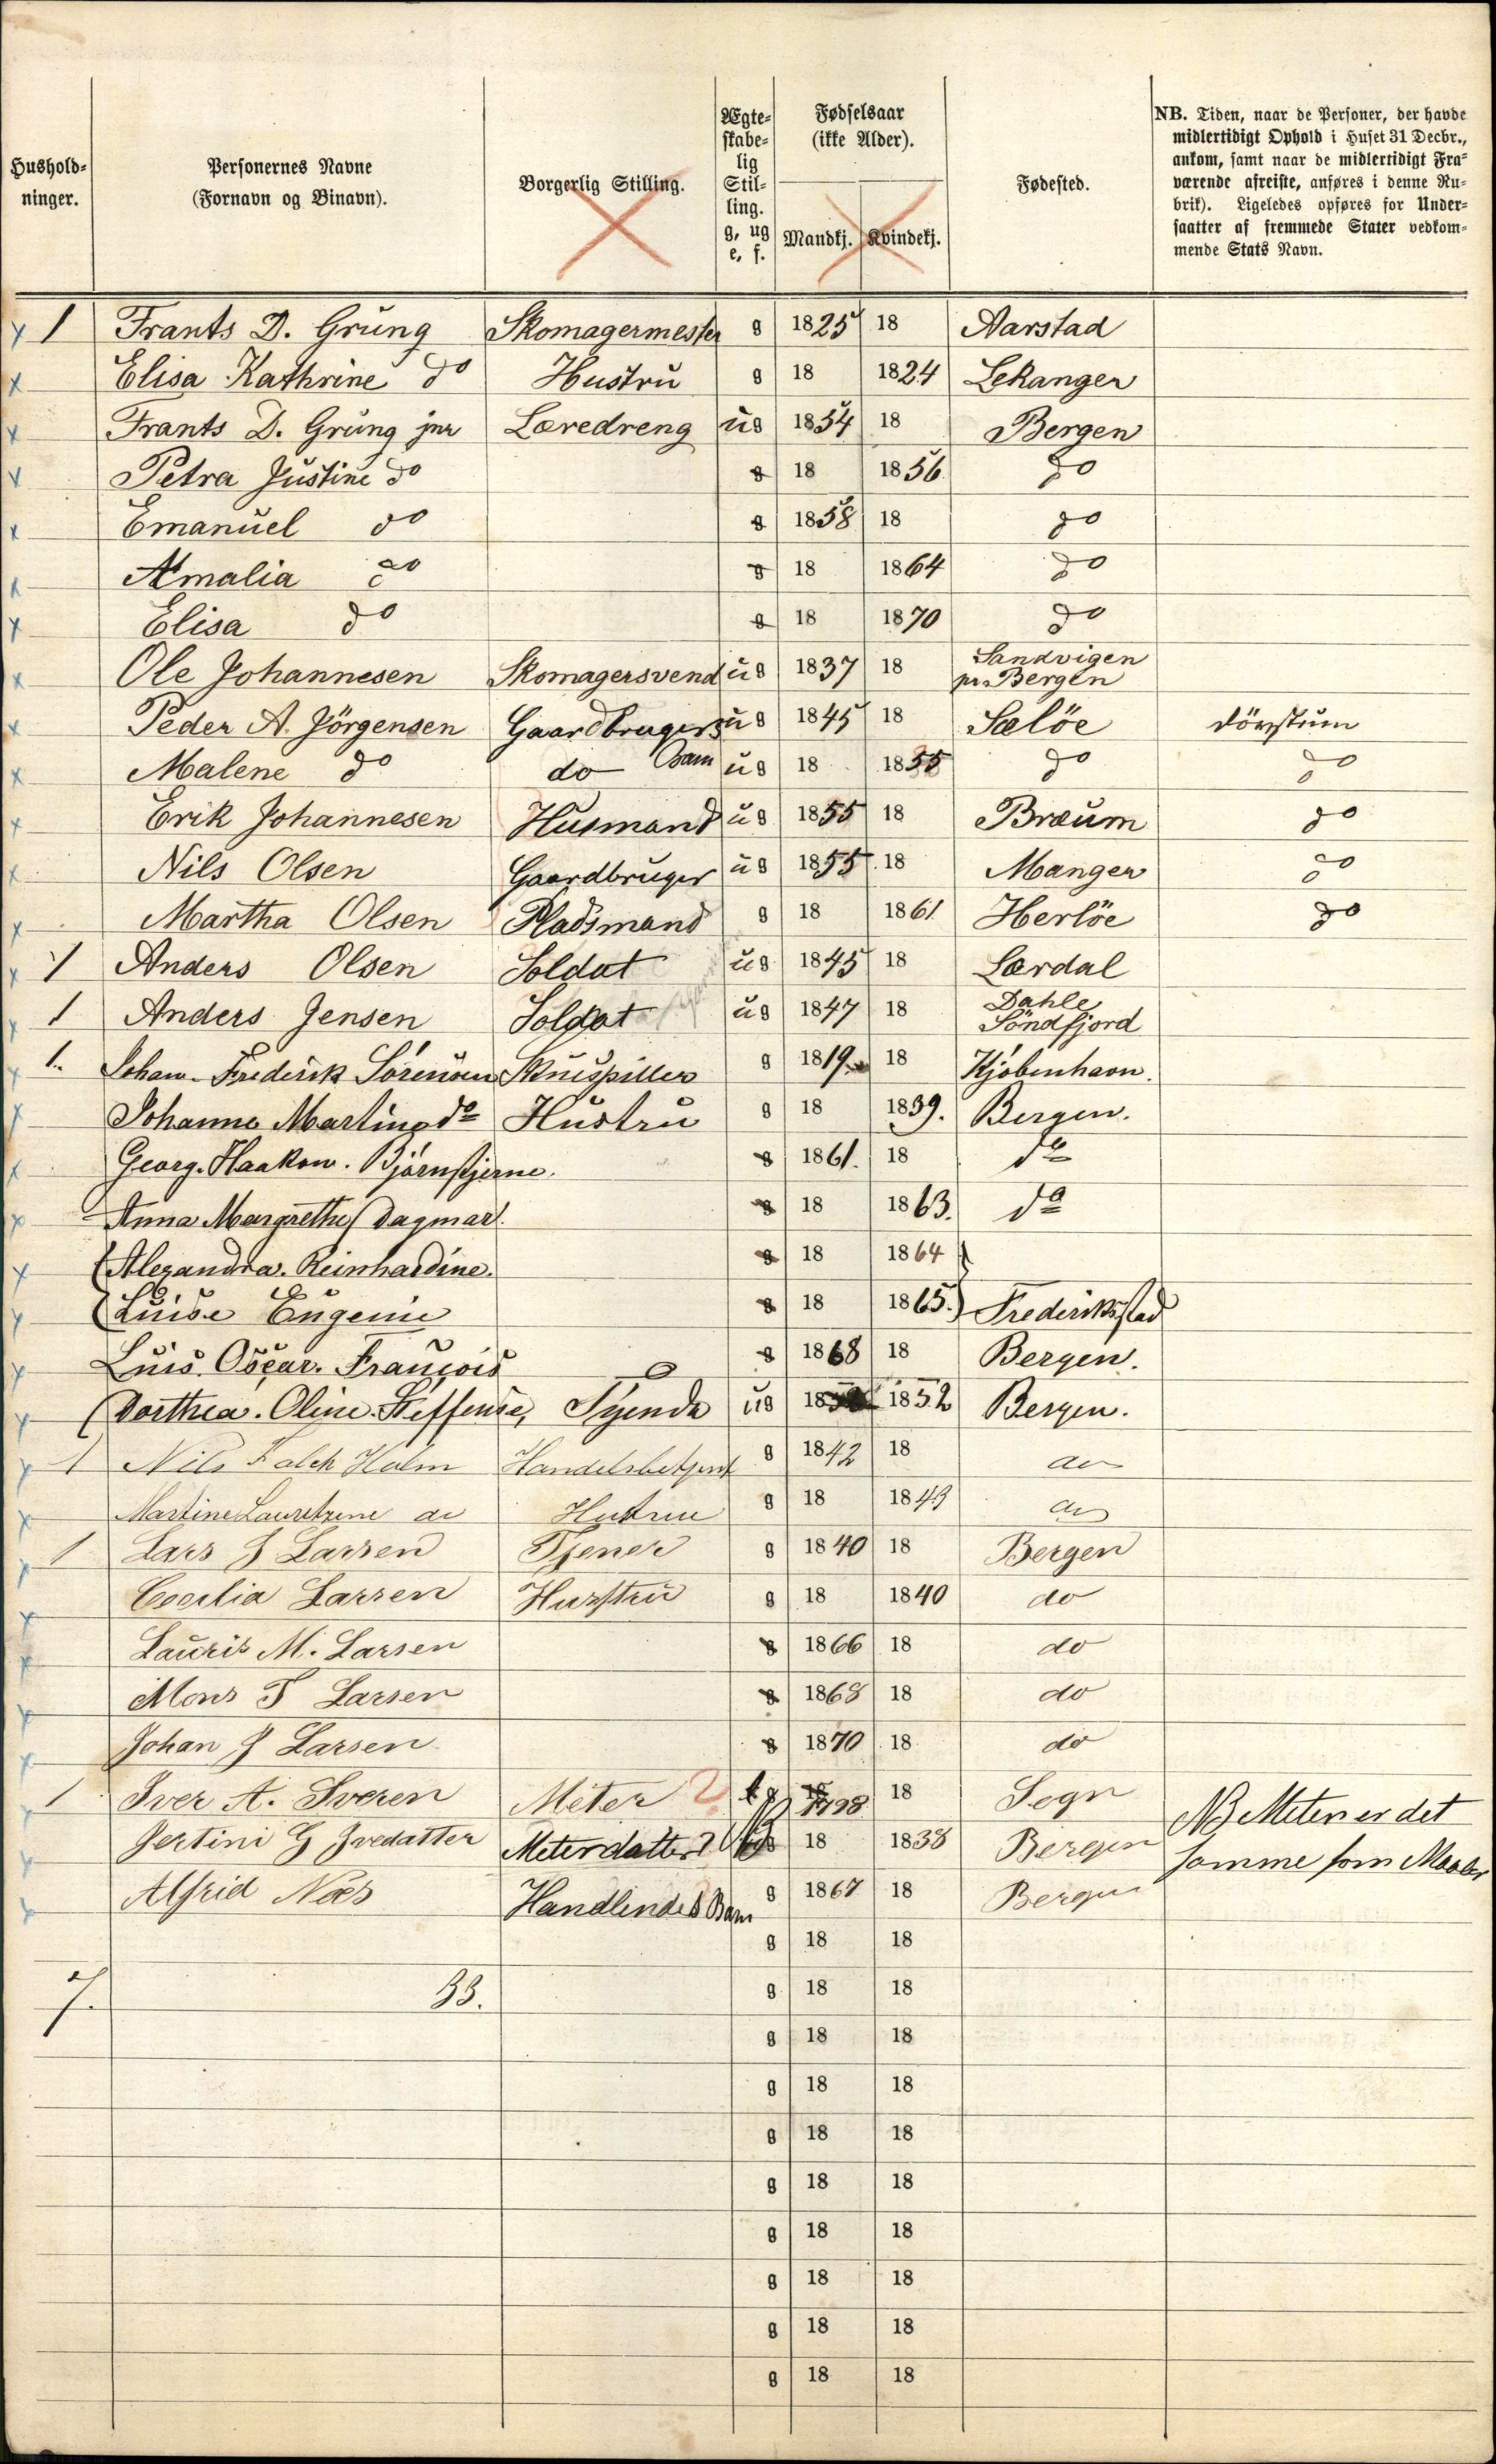 Hushold-
ninger.
Personernes Navne
(Fornavn og Binavn).
Borgerlig Stilling.
Ægte-
skabe-
lig
Stil-
ling.
g, ug
e, f.
Fødselsaar
(ikke Alder).
Mandkj. Kvindekj.
Fødested.
NB. Tiden, naar de Personer, der havde
midlertidigt Ophold i Huset 31 Decbr.,
ankom, samt naar de midlertidigt Fra-
værende afreiste, anføres i denne Ru-
brik). Ligeledes opføres for Under-
saatter af fremmede Stater vedkom-
mende Stats Navn.
1 Frants D. Grüng Skomagermester g 1825 18 Aarstad
Elisa Kathrine do Hustrü g 18 1824 Lekanger
Frants D. Grüng jnr Læredreng üg 1854 18 Bergen
Petra Jüstine do g 18 1856 do
Emanüel do g 1858 18 do
Amalia do g 18 1864 do
Elisa do g 18 1870 do
Ole Johannesen Skomagersvend üg 1837 18 Sandvigen pr. Bergen
Peder A. Jörgensen Gaardbrugers üg 1845 18 Sælöe
Malene do do Barn üg 18 1855 do do
Erik Johannesen Husmand üg 1855 18 Bræüm do
Nils Olsen Gaardbrüger üg 1855 18 Manger do
Martha Olsen Pladsmand g 18 1861 Herlöe do
1 Anders Olsen Soldat üg 1845 18 Lærdal
1 Anders Jensen Soldat üg 1847 18 Dahle Söndfjord
1. Johan Frederik Sörensen Sküespiller g 1819 18 Kjöbenhavn.
Johanne Martine do Hüstrü g 18 1839. Bergen.
Georg. Haakon. Björnstjerne. g 1861. 18 do
Anna Margrethe Dagmar. g 18 1863. do
Alexandra. Reinhardine. g 18 1864
Lüise Eügenie g 18 1865. Frederiksstad
Lüis. Oscar. François g 1868 18 Bergen.
Dorthea. Oline. Steffense, Tyende üg 18 1852 Bergen.
1 Nils Falck Holm Handelsbetjent g 1842 18 do
Martine do Hustrue g 18 1849 do
1 Lars J Larsen Tjener g 1840 18 Bergen
Cecilia Larsen Hustrü g 18 1840 do
Laüris M. Larsen g 1866 18 do
Mons T Larsen g 1868 18 do
Johan J Larsen g 1870 18 do
1 Iver A. Sveren Meter ? g 1798 18 Sogn NB Meter er det
Jertini G Ivedatter Meterdatter? NB g 18 1838 Bergen samme som Maaler
Alfrid Næs Handlendes Barn g 1867 18 Bergen
g 18 18
7. 33. g 18 18
g 18 18
g 18 18
g 18 18
g 18 18
g 18 18
g 18 18
g 18 18
g 18 18